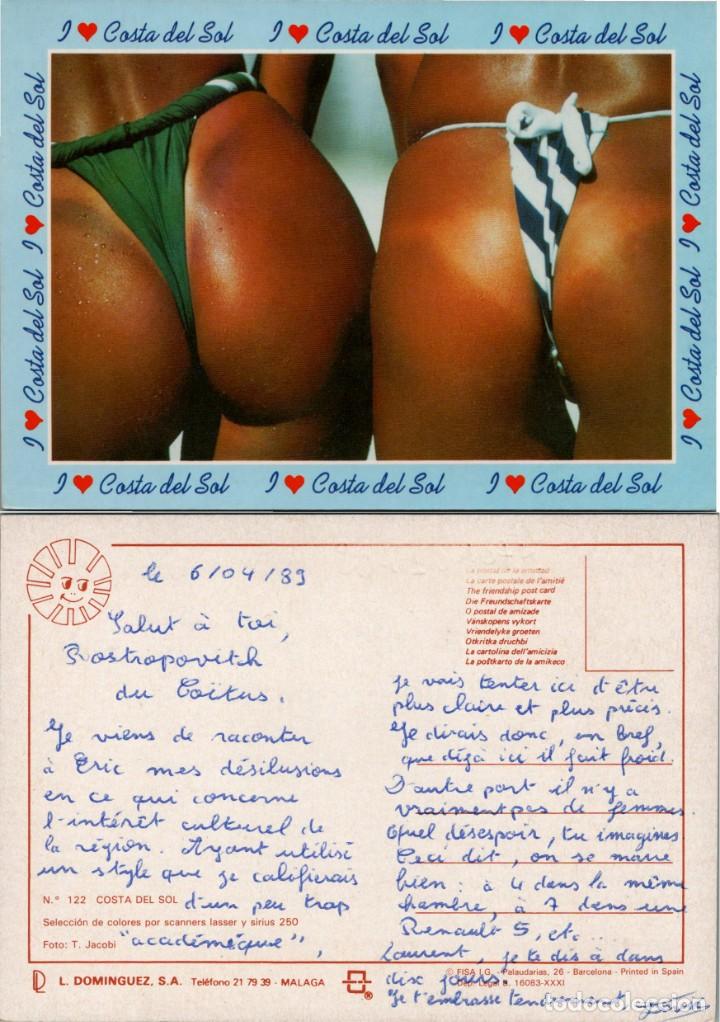 I ♥ Costa del Sol I ♥ Costa del Sol I ♥ Costa del Sol
I ♥ Costa del Sol I ♥ Costa del Sol
I ♥ Costa del Sol I ♥ Costa del Sol
I ♥ Costa del Sol I ♥ Costa del Sol I ♥ Costa del Sol
le 6/04/89
Salut à toi,
Rostropovitch
du Coïtus.
Je viens de raconter
à Eric mes désilusions
en ce qui concerne
l'intérêt culturel de
la région. Ayant utilisé
un style que je califierais
d'un peu trop
"académique",
N.° 122 COSTA DEL SOL
Selección de colores por scanners lasser y sirius 250
Foto: T. Jacobi
L. DOMINGUEZ, S.A. Teléfono 21 79 39 - MALAGA
®
La postal de la amistad
La carte postale de l'amitié
The friendship post card
Die Freundschaftskarte
O postal de amizade
Vänskopens vykort
Vriendelyke groeten
Otkritka druchbi
La cartolina dell'amicizia
La poŝtkarto de la amikeco
je vais tenter ici d'être
plus claire et plus précis.
Je dirais donc, en bref,
que déjà ici il fait froid.
D'autre part il n'y a
vraiment pas de femmes.
Quel désespoir, tu imagines.
Ceci dit, on se marre
bien : à 4 dans la même
chambre, à 7 dans une
Renault 5, etc...
Laurent, je te dis à dans
dix jours.
Je t'embrasse tendrement
© FISA I.G. Palaudarias, 26 - Barcelona - Printed in Spain
Dep. Legal B. 16083-XXXI
todocoleccion